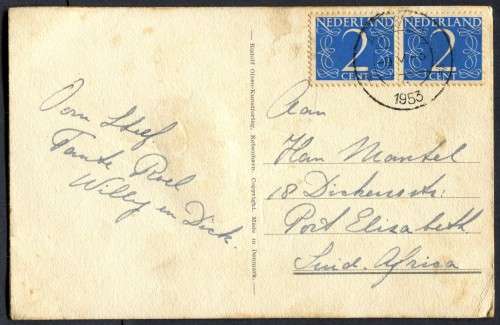 NEDERLAND NEDERLAND
2 2
CENT CENT
1953
Oom Stef
Tante Roel
Willy en Dick.
Rudolf Olsen-Kunstforlag, København. Copyright. Made in Denmark.
Aan
Han Mantel
18 Dickensstr:
Port Elisabeth.
Suid. Africa